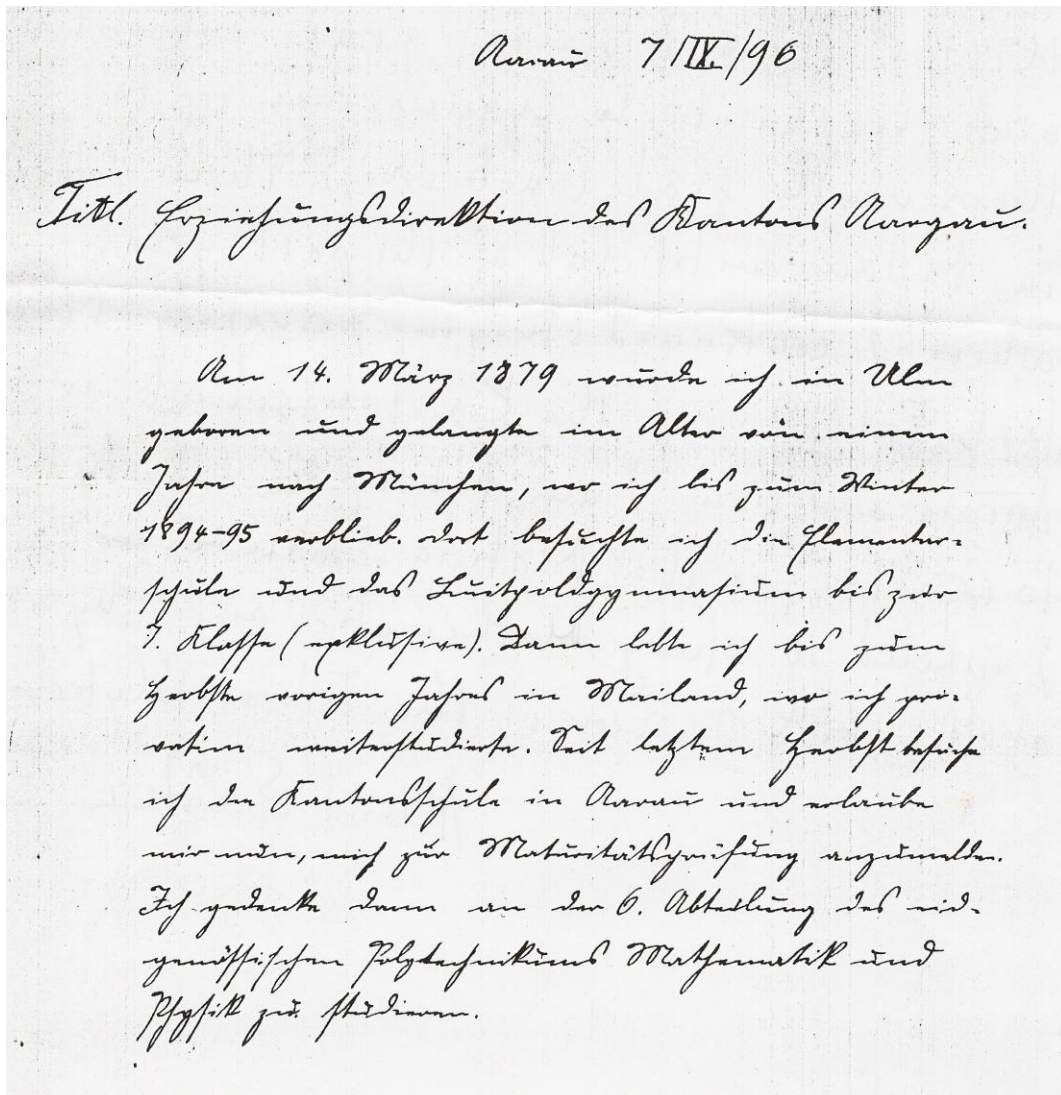 Aarau 7/IX./96
Titl. Erziehungsdirektion des Kantons Aargau.
Am 14. März 1879 wurde ich in Ulm
geboren und gelangte im Alter von einem
Jahre nach München, wo ich bis zum Winter
1894-95 verblieb. Dort besuchte ich die Elementar-
schule und das Luitpoldgymnasium bis zur
7. Klasse (exklusive). Dann lebte ich bis zum
Herbste vorigen Jahres in Mailand, wo ich pri-
vatim weiterstudierte. Seit letztem Herbst besuche
ich die Kantonsschule in Aarau und erlaube
mir nun, mich zur Maturitätsprüfung anzumelden.
Ich gedenke dann an der 6. Abteilung des eid-
genössischen Polytechnikums Mathematik und
Physik zu studieren.